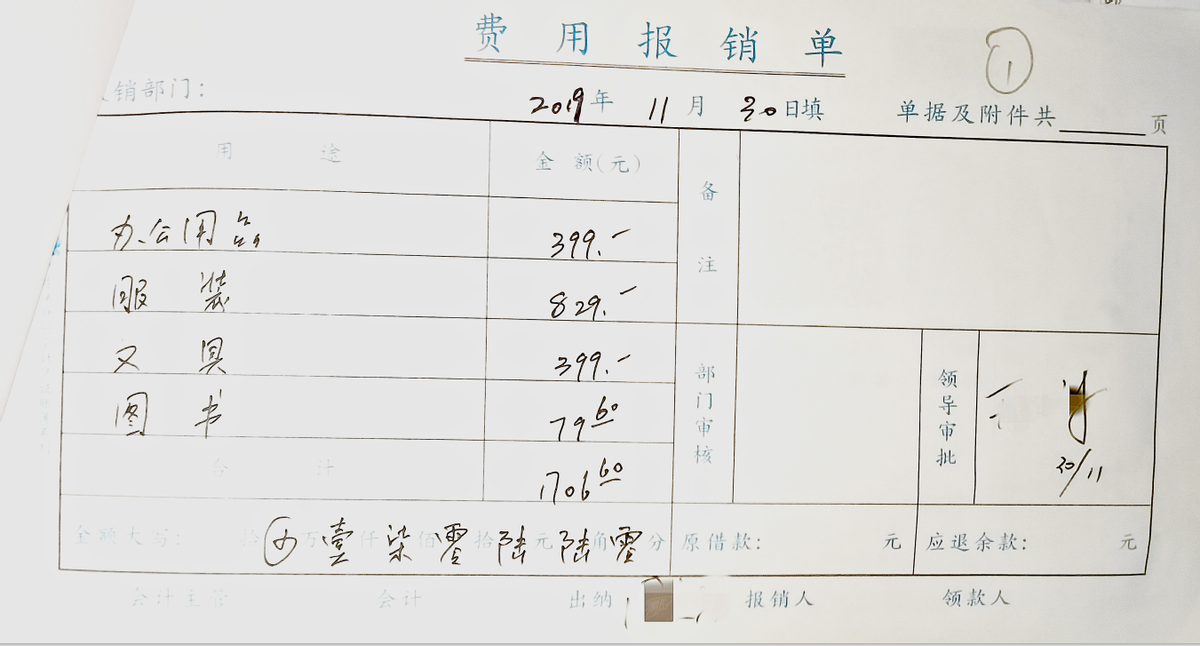 费用报销单
①
销部门:
2019年 11月 30日填 单据及附件共 页
用途 金额(元) 备注
办公用品 399.-
服装 829.-
文具 399.-
图书 79 60
合计 1706 60
部门审核
领导审批
30/11
金额大写: 拾 万壹仟柒佰零拾陆元陆角零分 原借款: 元 应退余款: 元
会计主管 会计 出纳 报销人 领款人